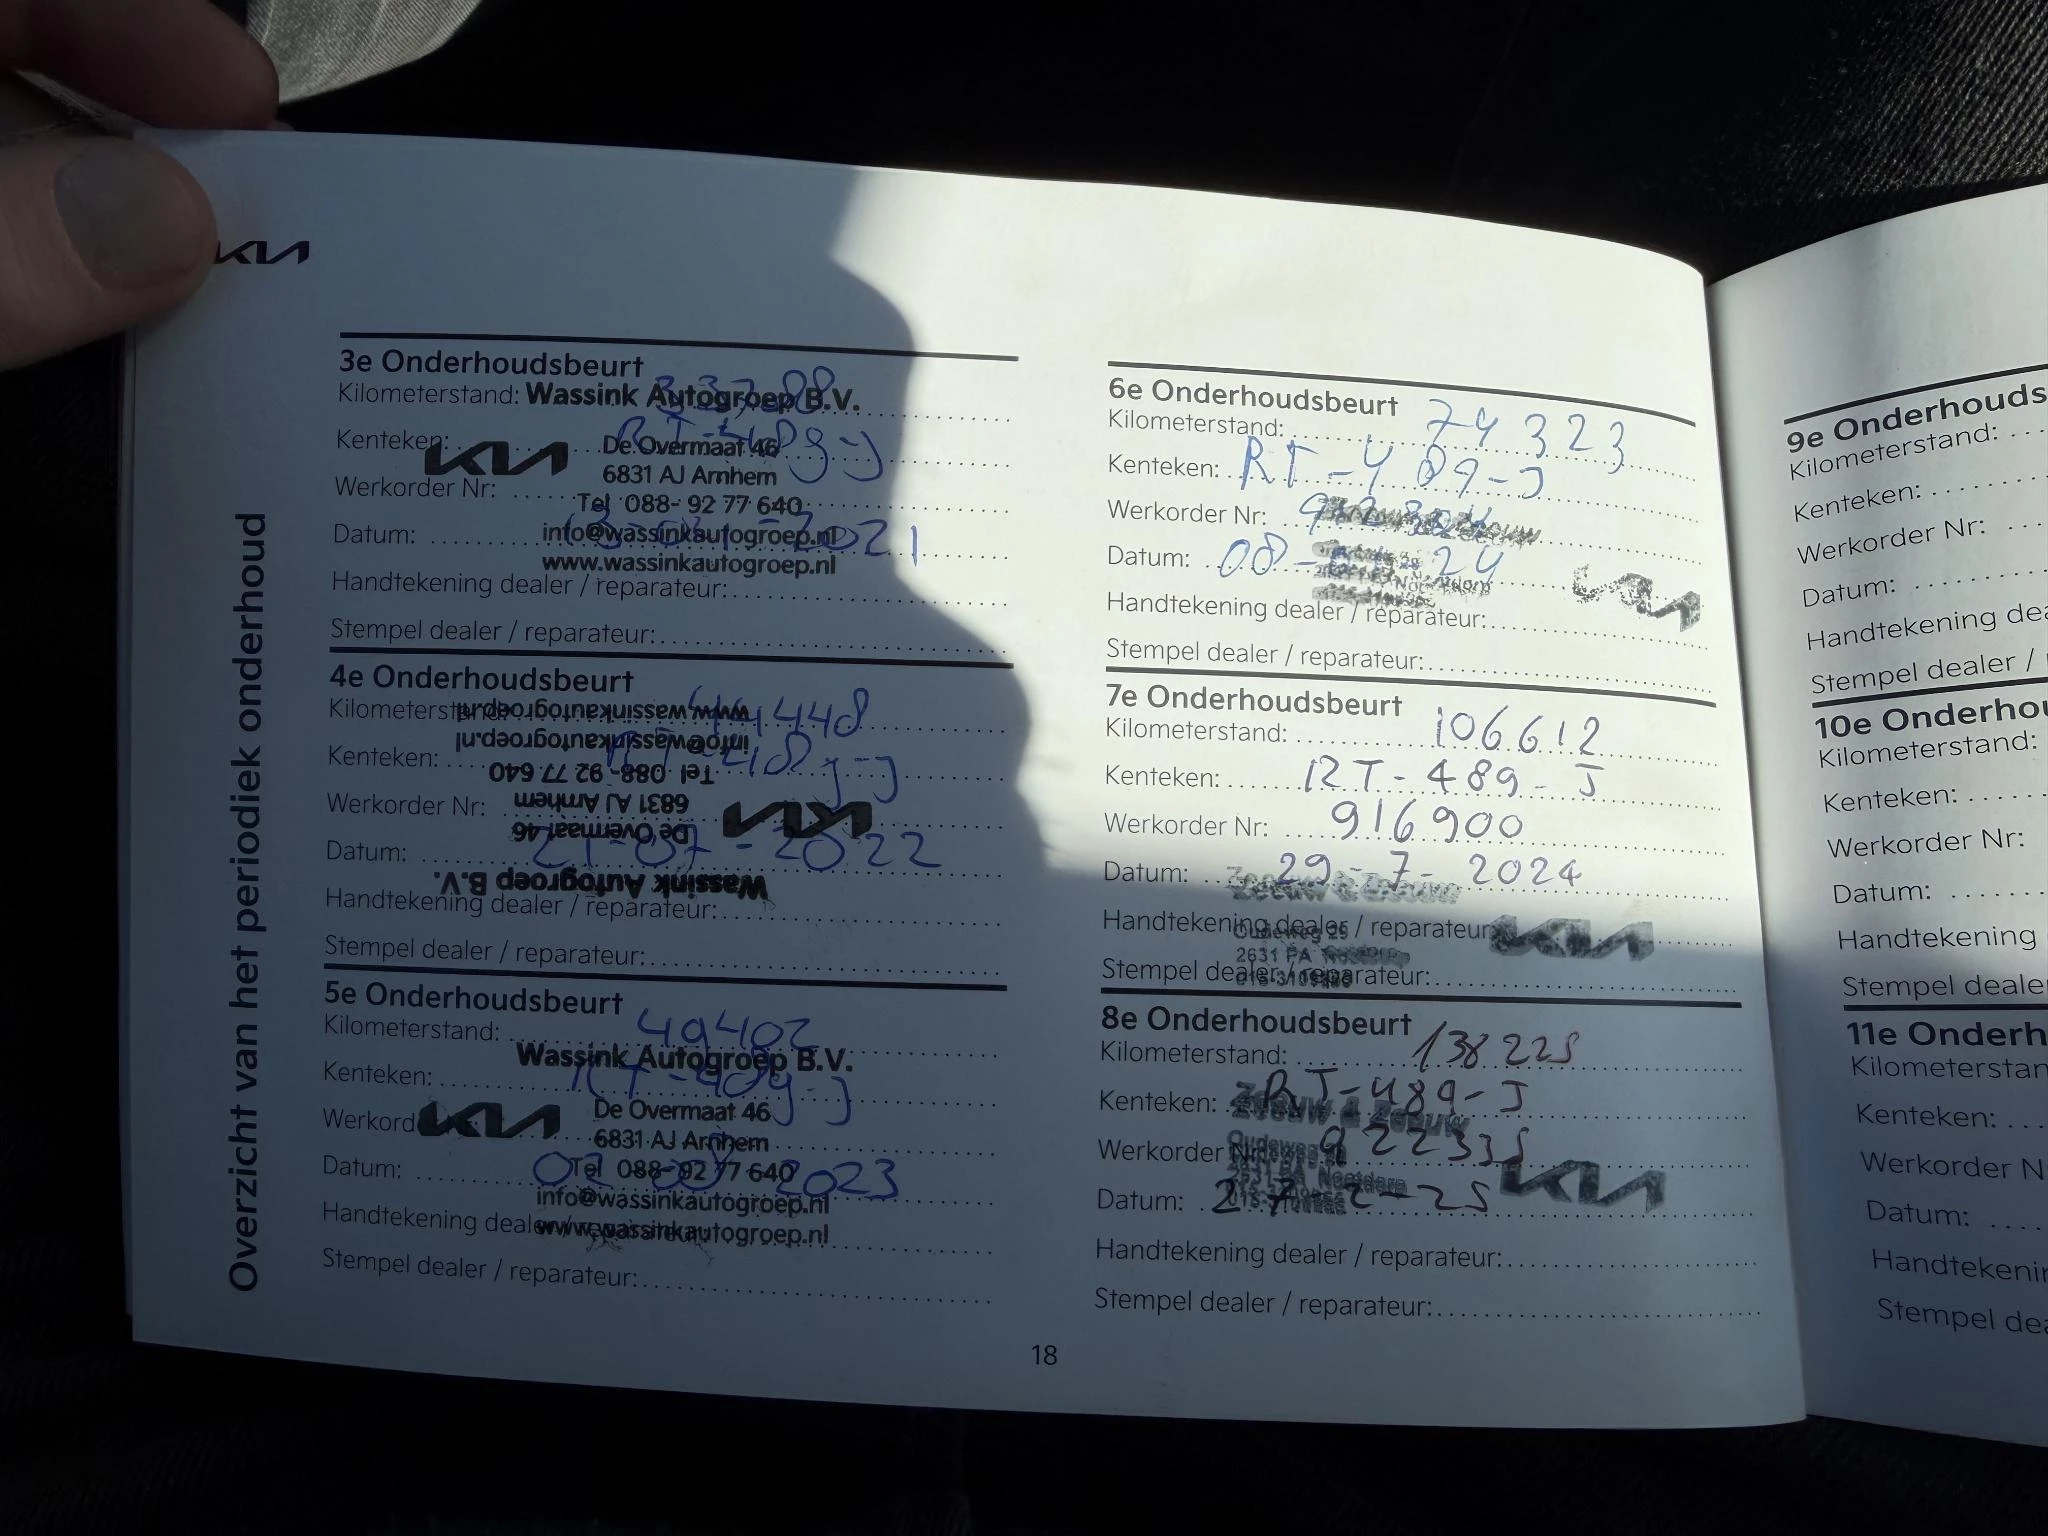 KIA
Overzicht van het periodiek onderhoud
3e Onderhoudsbeurt
Kilometerstand:
Wassink Autogroep B.V.
Kenteken:
KIA
De Overmaat 46
6831 AJ Arnhem
Werkorder Nr:
Tel 088- 92 77 640
Datum: 2021
info@wassinkautogroep.nl
www.wassinkautogroep.nl
Handtekening dealer / reparateur:
Stempel dealer / reparateur:
4e Onderhoudsbeurt
Kilometerstand: 44448
www.wassinkautogroep.nl
info@wassinkautogroep.nl
Kenteken:
Tel 088- 92 77 640
6831 AJ Arnhem
Werkorder Nr:
KIA
De Overmaat 46
Datum: 21-07-2022
Wassink Autogroep B.V.
Handtekening dealer / reparateur:
Stempel dealer / reparateur:
5e Onderhoudsbeurt
Kilometerstand: 49402
Wassink Autogroep B.V.
Kenteken: RT-489-J
KIA
De Overmaat 46
6831 AJ Arnhem
Datum: 2023
Tel 088- 92 77 640
info@wassinkautogroep.nl
www.wassinkautogroep.nl
Handtekening dealer / reparateur:
Stempel dealer / reparateur:
6e Onderhoudsbeurt
Kilometerstand: 74323
Kenteken: RT-489-J
Werkorder Nr:
Datum: 08- 24
KIA
Handtekening dealer / reparateur:
Stempel dealer / reparateur:
7e Onderhoudsbeurt
Kilometerstand: 106612
Kenteken: RT-489-J
Werkorder Nr: 916900
Datum: 29-7-2024
Zeeuw & Zeeuw
Handtekening dealer / reparateur:
Oudeweg 25
KIA
2631 PA
Stempel dealer / reparateur:
8e Onderhoudsbeurt
Kilometerstand: 138225
Kenteken: RT-489-J
Zeeuw & Zeeuw
Werkorder Nr: 922335
Oudeweg
KIA
2631 PA Nootdorp
Datum: 27-2-25
Handtekening dealer / reparateur:
Stempel dealer / reparateur:
18
9e Onderhouds
Kilometerstand:
Kenteken:
Werkorder Nr:
Datum:
Handtekening dea
Stempel dealer /
10e Onderhou
Kilometerstand:
Kenteken:
Werkorder Nr:
Datum:
Handtekening
Stempel deale
11e Onderh
Kilometerstan
Kenteken:
Werkorder N
Datum:
Handtekenin
Stempel dea